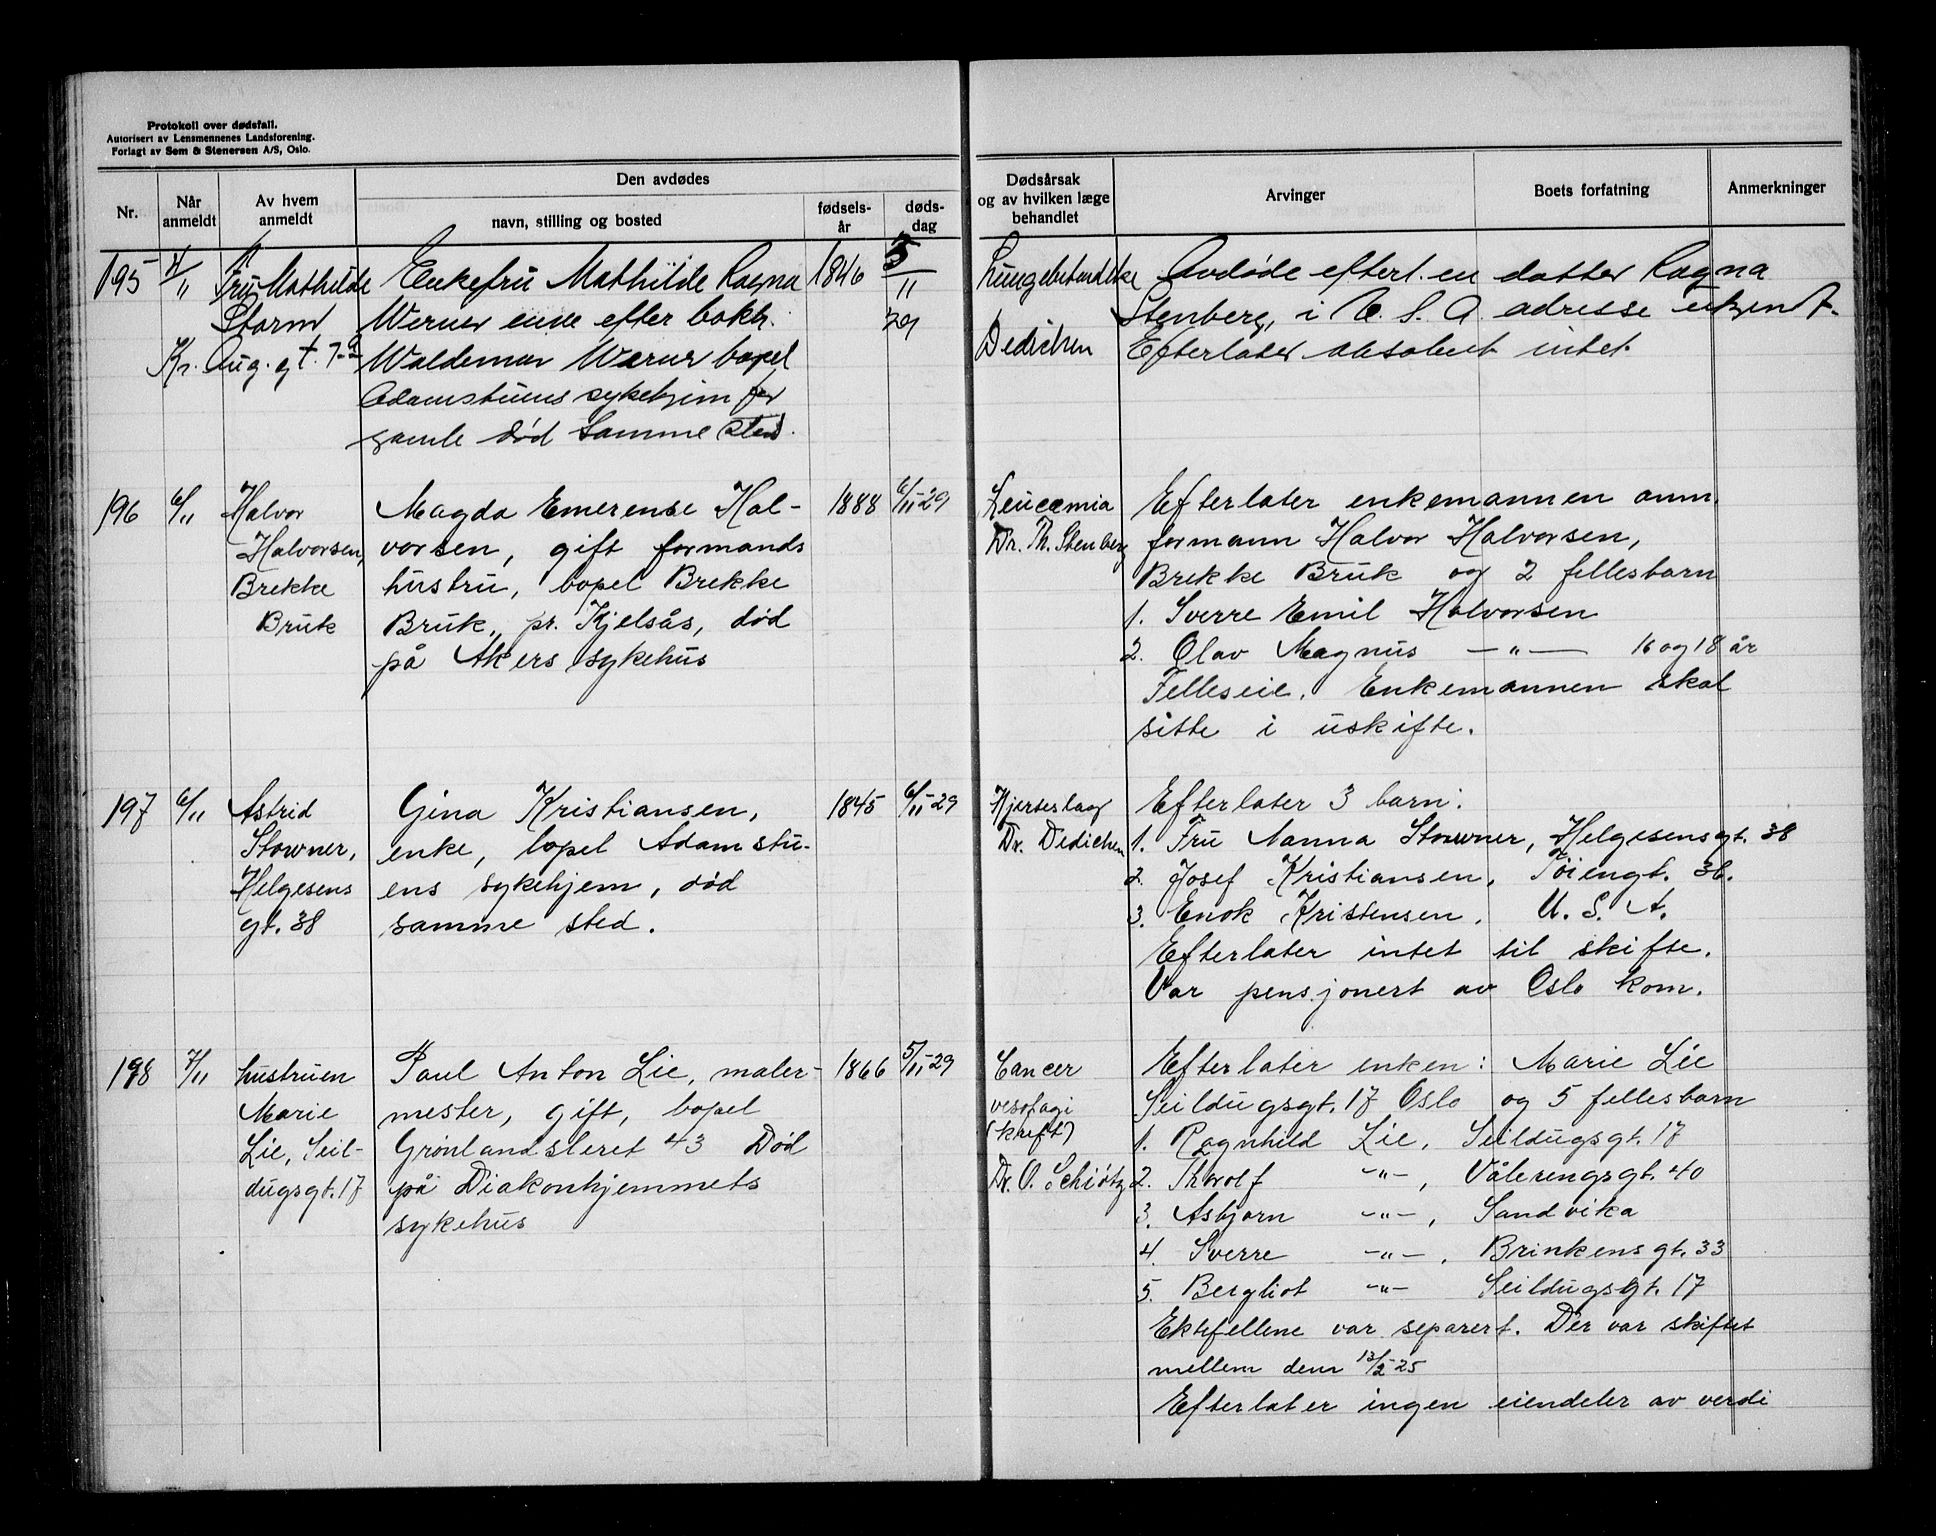 Protokoll over dødsfall.
Autorisert av Lensmennenes Landsforening.
Forlagt av Sem & Stenersen A/S, Oslo.
Nr.
Når anmeldt
Av hvem anmeldt
Den avdødes
navn, stilling og bosted
fødsels-år
døds-dag
Dødsårsak og av hvilken læge behandlet
Arvinger
Boets forfatning
Anmerkninger
195
4/11
Fru Mathilde
Storm
Kr. Aug. gt. 7a
Enkefru Mathilde Ragna
Werner enke efter bokh.
Waldemar Werner bopel
Adamstuens sykehjem for
gamle død samme sted.
1846
5/11
29
Lungebetendelse
Dedichen
Avdøde efterl. en datter Ragna
Stenberg, i U. S. A. adresse ukjent.
Efterlater absolut intet.
196
6/11
Halvor
Halvorsen,
Brekke
Bruk
Magda Emerense Hal-
vorsen, gift formands
hustru, bopel Brekke
Bruk, pr. Kjelsås, død
på Akers sykehus
1888
6/11-29
Leucæmia
Dr. Th. Stenberg
Efterlater enkemannen anm.
formann Halvor Halvorsen,
Brekke Bruk og 2 fellesbarn
1. Sverre Emil Halvorsen
2. Olav Magnus —"— 16 og 18 år
Felleseie. Enkemannen skal
sitte i uskifte.
197
6/11
Astrid
Stowner,
Helgesens
gt. 38
Gina Kristiansen,
enke, bopel Adamstu-
ens sykehjem, død
samme sted.
1845
6/11-29
Hjerteslag
Dr. Dedichen
Efterlater 3 barn:
1. Fru Nanna Stowner, Helgesensgt. 38
2. Josef Kristiansen, Tøiengt. 36.
3. Enok Kristensen, U. S. A.
Efterlater intet til skifte.
Var pensjonert av Oslo kom.
198
7/11
hustruen
Marie
Lie, Seil-
dugsgt. 17
Paul Anton Lie, maler-
mester, gift, bopel
Grønlandsleret 43 Død
på Diakonhjemmets
sykehus
1866
5/11-29
Cancer
vesofagi
(kreft)
Dr. O. Schiøtz
Efterlater enken: Marie Lie
Seildugsgt. 17 Oslo og 5 fellesbarn
1. Ragnhild Lie, Seildugsgt. 17
2. Thorolf -"-, Vålerengsgt. 40
3. Asbjørn -"-, Sandvika
4. Sverre -"-, Brinkensgt. 33
5. Bergliot -"- Seildugsgt. 17
Ektefellene var separert. Der var skiftet
mellem dem 13/2-25
Efterlater ingen eiendeler av verdi